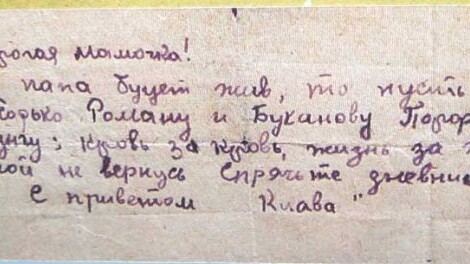 рогая мамочка!
папа будет жив, то пусть
только Роману и Буканову Порфи
лингу; кровь за кровь, жизнь за
мой не вернусь Спрячьте дневник
С приветом Клава"